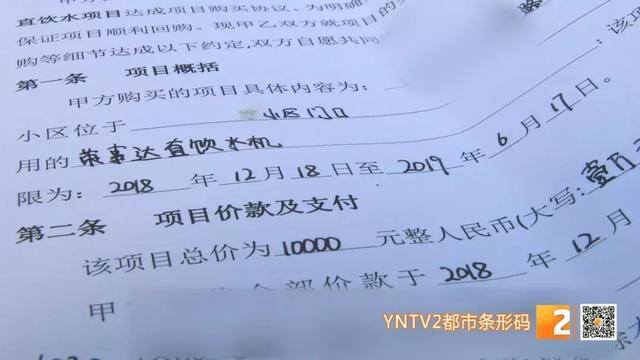 直饮水项目达成项目购买协议。为明确
保证项目顺利回购。现甲乙双方就项目的
购等细节达成以下约定,双方自愿共同
第一条 项目概括
甲方购买的项目具体内容为:
该项
小区位于 小区门口
用的 荣事达直饮水机
限为: 2018 年 12 月 18 日至 2019 年 6 月 17 日。
第二条 项目价款及支付
该项目总价为 10000 元整人民币(大写: 壹万
甲 全部价款于 2018 年 12 月
YNTV2都市条形码 2